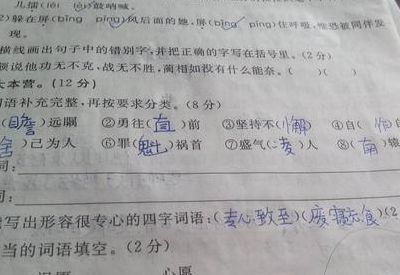 儿擂(léi lèi)鼓呐喊。
2)躲在屏(bǐng píng)风后面的她,屏(bǐng píng)住呼吸,惟恐被同伴发
现。
横线画出句子中的错别字,并把正确的字写在括号里。(2分)
颇说他功无不克,战无不胜,蔺相如没有什么能奈。( )( )
大本营。(12分)
词语补充完整,再按要求分类。(8分)
(瞻)远瞩 ②勇往(直)前 ③坚持不(懈) ④自( 自
舍)己为人 ⑥罪(魁)祸首 ⑦盛气(凌)人 ⑧(南)辕
词:
词:
写出形容很专心的四字词语:(专心致至)(废寝忘食)(2
当的词语填空。(2分)
心愿